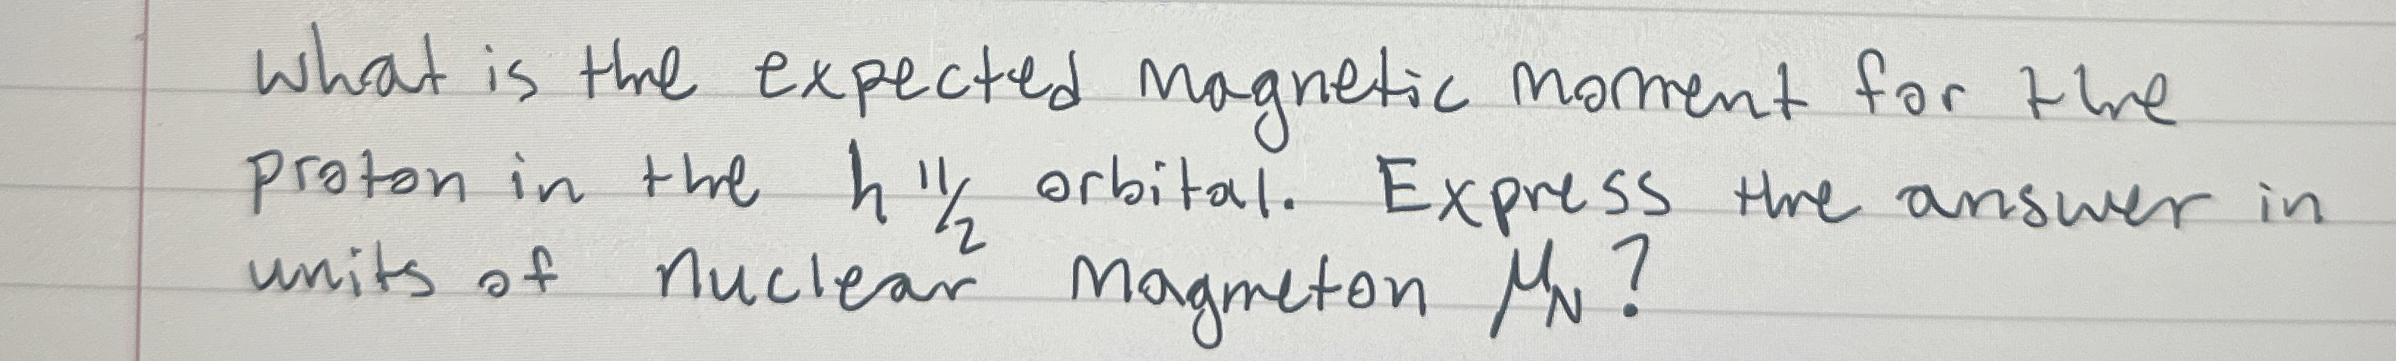 What is the expected magnetic moment for the
proton in the h 11/2 orbital. Express the answer in
units of nuclear magneton μN?